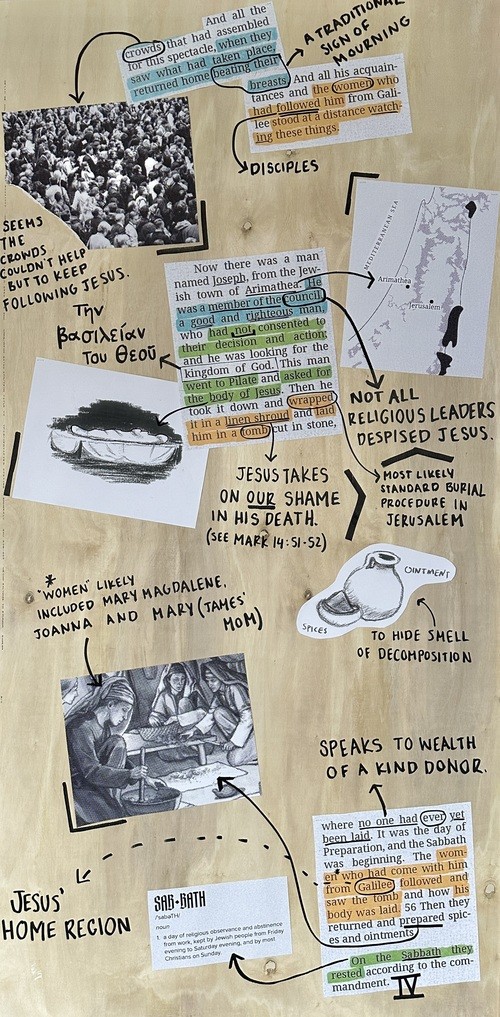 And all the
crowds that had assembled
for this spectacle, when they
saw what had taken place,
returned home beating their
breasts. And all his acquain-
tances and the women who
had followed him from Gali-
lee stood at a distance watch-
ing these things.
A TRADITIONAL
SIGN OF
MOURNING
DISCIPLES
SEEMS
THE
CROWDS
COULDN'T HELP
BUT TO KEEP
FOLLOWING JESUS.
MEDITERRANEAN SEA
Arimathea
Jerusalem
Now there was a man
named Joseph, from the Jew-
ish town of Arimathea. He
was a member of the council,
a good and righteous man,
who had not consented to
their decision and action;
and he was looking for the
kingdom of God. This man
went to Pilate and asked for
the body of Jesus. Then he
took it down and wrapped
it in a linen shroud and laid
him in a tomb cut in stone,
Την
βασιλείαν
του Θεού
NOT ALL
RELIGIOUS LEADERS
DESPISED JESUS.
JESUS TAKES
ON OUR SHAME
IN HIS DEATH.
(SEE MARK 14:51-52)
MOST LIKELY
STANDARD BURIAL
PROCEDURE IN
JERUSALEM
OINTMENT
SPICES
TO HIDE SMELL
OF DECOMPOSITION
*
"WOMEN" LIKELY
INCLUDED MARY MAGDALENE,
JOANNA AND MARY (JAMES'
MOM)
SPEAKS TO WEALTH
OF A KIND DONOR.
where no one had ever yet
been laid. It was the day of
Preparation, and the Sabbath
was beginning. The wom-
en who had come with him
from Galilee followed and
saw the tomb and how his
body was laid. 56 Then they
returned and prepared spic-
es and ointments.
On the Sabbath they
rested according to the com-
mandment.
IV
JESUS'
HOME REGION
SAB•BATH
/'sabəTH/
noun
1. a day of religious observance and abstinence
from work, kept by Jewish people from Friday
evening to Saturday evening, and by most
Christians on Sunday.